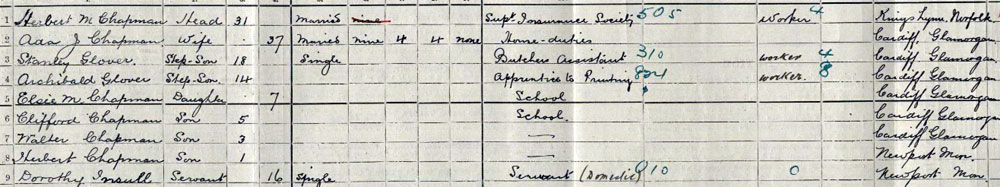 1 Herbert M Chapman Head 31 Married nine Supt. Insurance Society 505 Worker 4 Kings Lynn, Norfolk
2 Ada J Chapman Wife 37 Married nine 4 4 none Home-duties Cardiff, Glamorgan
3 Stanley Glover Step-Son 18 Single Butchers Assistant 310 worker 4 Cardiff Glamorgan
4 Archibald Glover Step-Son 14 Apprentice to Printing worker 8 Cardiff Glamorgan
5 Elsie M. Chapman Daughter 7 School Cardiff Glamorgan
6 Clifford Chapman Son 5 School. Cardiff Glamorgan
7 Walter Chapman Son 3 — Cardiff Glamorgan
8 Herbert Chapman Son 1 — Newport Mon.
9 Dorothy Insull Servant 16 Single Servant (Domestic) 010 0 Newport Mon.